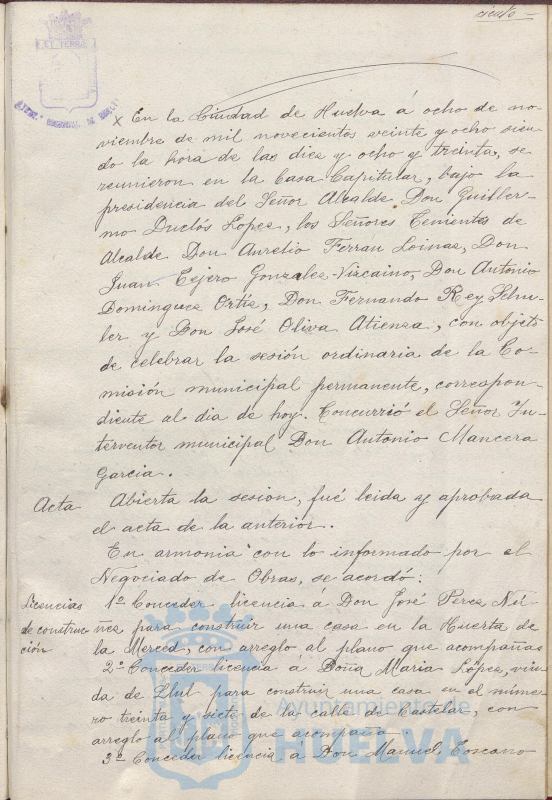 ciento =
x En la Ciudad de Huelva á ocho de no-
viembre de mil novecientos veinte y ocho sien-
do la hora de las diez y ocho y treinta, se
reunieron en la Casa Capitular, bajo la
presidencia del Señor Alcalde Don Guiller-
mo Duclós Lopez, los Señores Tenientes de
Alcalde Don Aurelio Ferran Loinaz, Don
Juan Tejero Gonzalez-Vizcaino, Don Antonio
Dominguez Ortiz, Don Fernando Rey Schu-
ler y Don José Oliva Atienza, con objeto
de celebrar la sesión ordinaria de la Co-
misión municipal permanente, correspon-
diente al dia de hoy. Concurrió el Señor In-
terventor municipal Don Antonio Mancera
Garcia.
Acta Abierta la sesion, fué leida y aprobada
el acta de la anterior.
En armonia con lo informado por el
Negociado de Obras, se acordó:
Licencias 1º Conceder licencia á Don José Perez Nú-
de construc- ñez para construir una casa en la Huerta de
ción la Merced, con arreglo al plano que acompañas
2º Conceder licencia á Doña Maria López, viu-
da de Llut para construir una casa en el núme-
ro treinta y siete de la calle de Castelar, con
arreglo al plano que acompaña.
3º Conceder licencia á Don Manuel Toscano
Ayuntamiento de
HUELVA